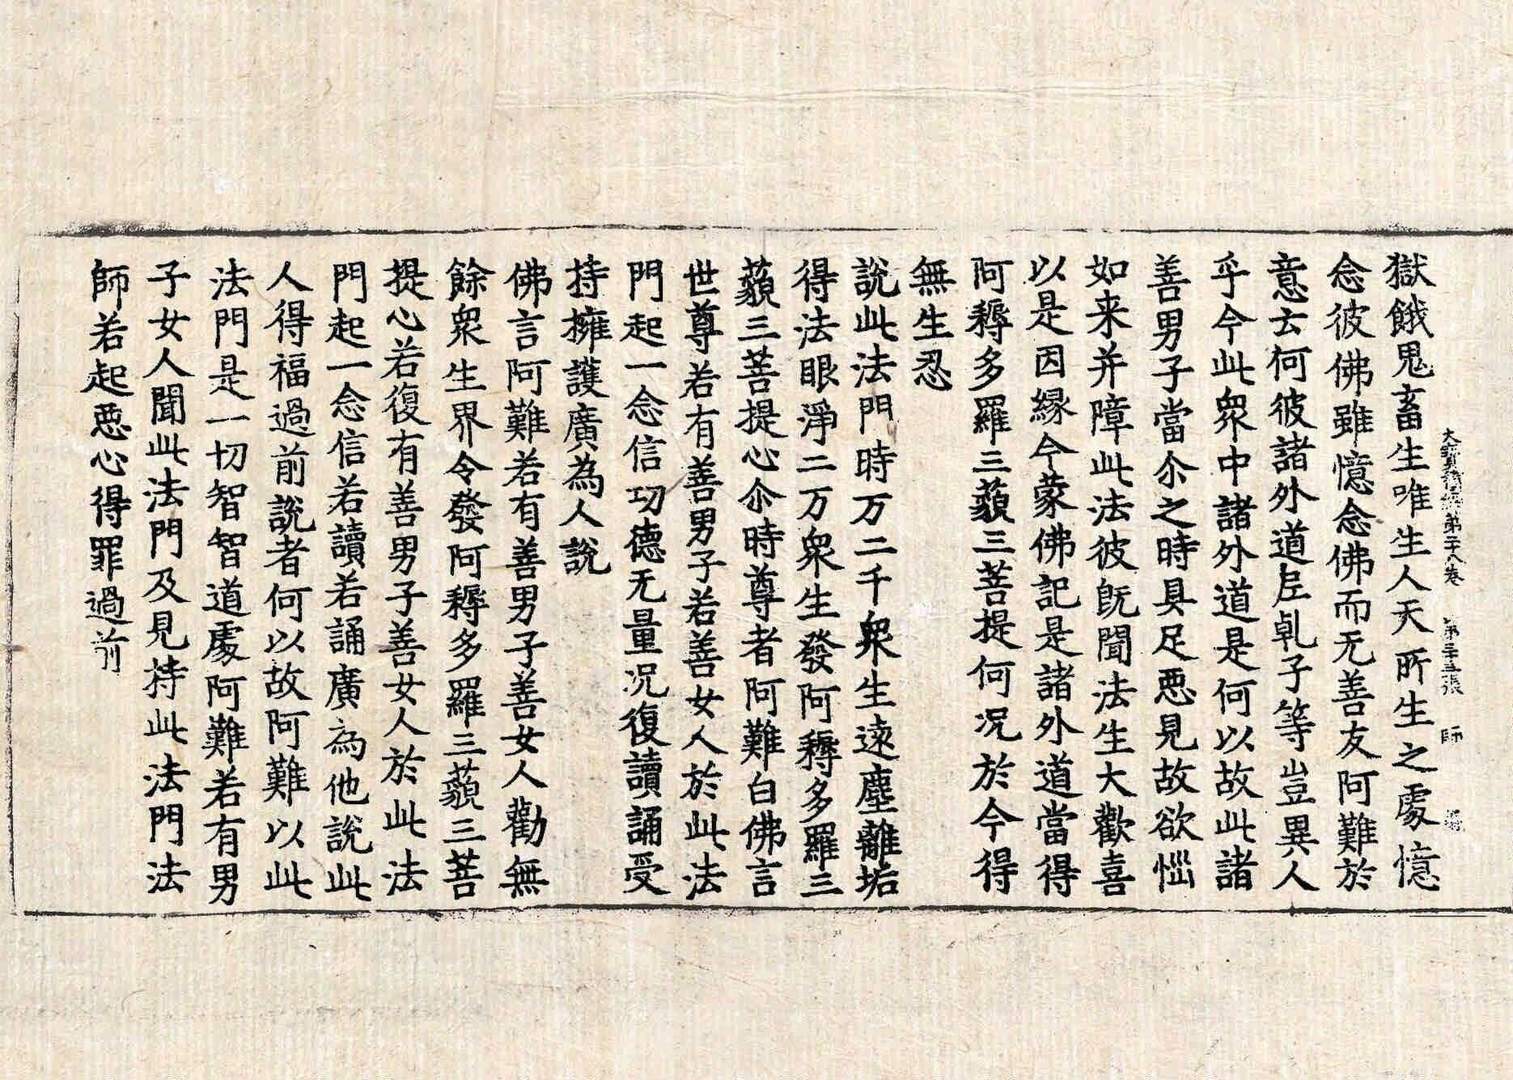 大寶積經第二十八卷 第三十五張 師
獄餓鬼畜生唯生人天所生之處憶
念彼佛雖憶念佛而无善友阿難於
意云何彼諸外道尼乹子等豈異人
乎今此衆中諸外道是何以故此諸
善男子當尒之時具足惡見故欲惱
如来并障此法彼旣聞法生大歡喜
以是因縁今蒙佛記是諸外道當得
阿耨多羅三藐三菩提何况於今得
無生忍
說此法門時万二千衆生遠塵離垢
得法眼淨二万衆生發阿耨多羅三
藐三菩提心尒時尊者阿難白佛言
世尊若有善男子若善女人於此法
門起一念信功德无量况復讀誦受
持擁護廣為人說
佛言阿難若有善男子善女人勸無
餘衆生界令發阿耨多羅三藐三菩
提心若復有善男子善女人於此法
門起一念信若讀若誦廣為他說此
人得福過前說者何以故阿難以此
法門是一切智智道處阿難若有男
子女人聞此法門及見持此法門法
師若起惡心得罪過前